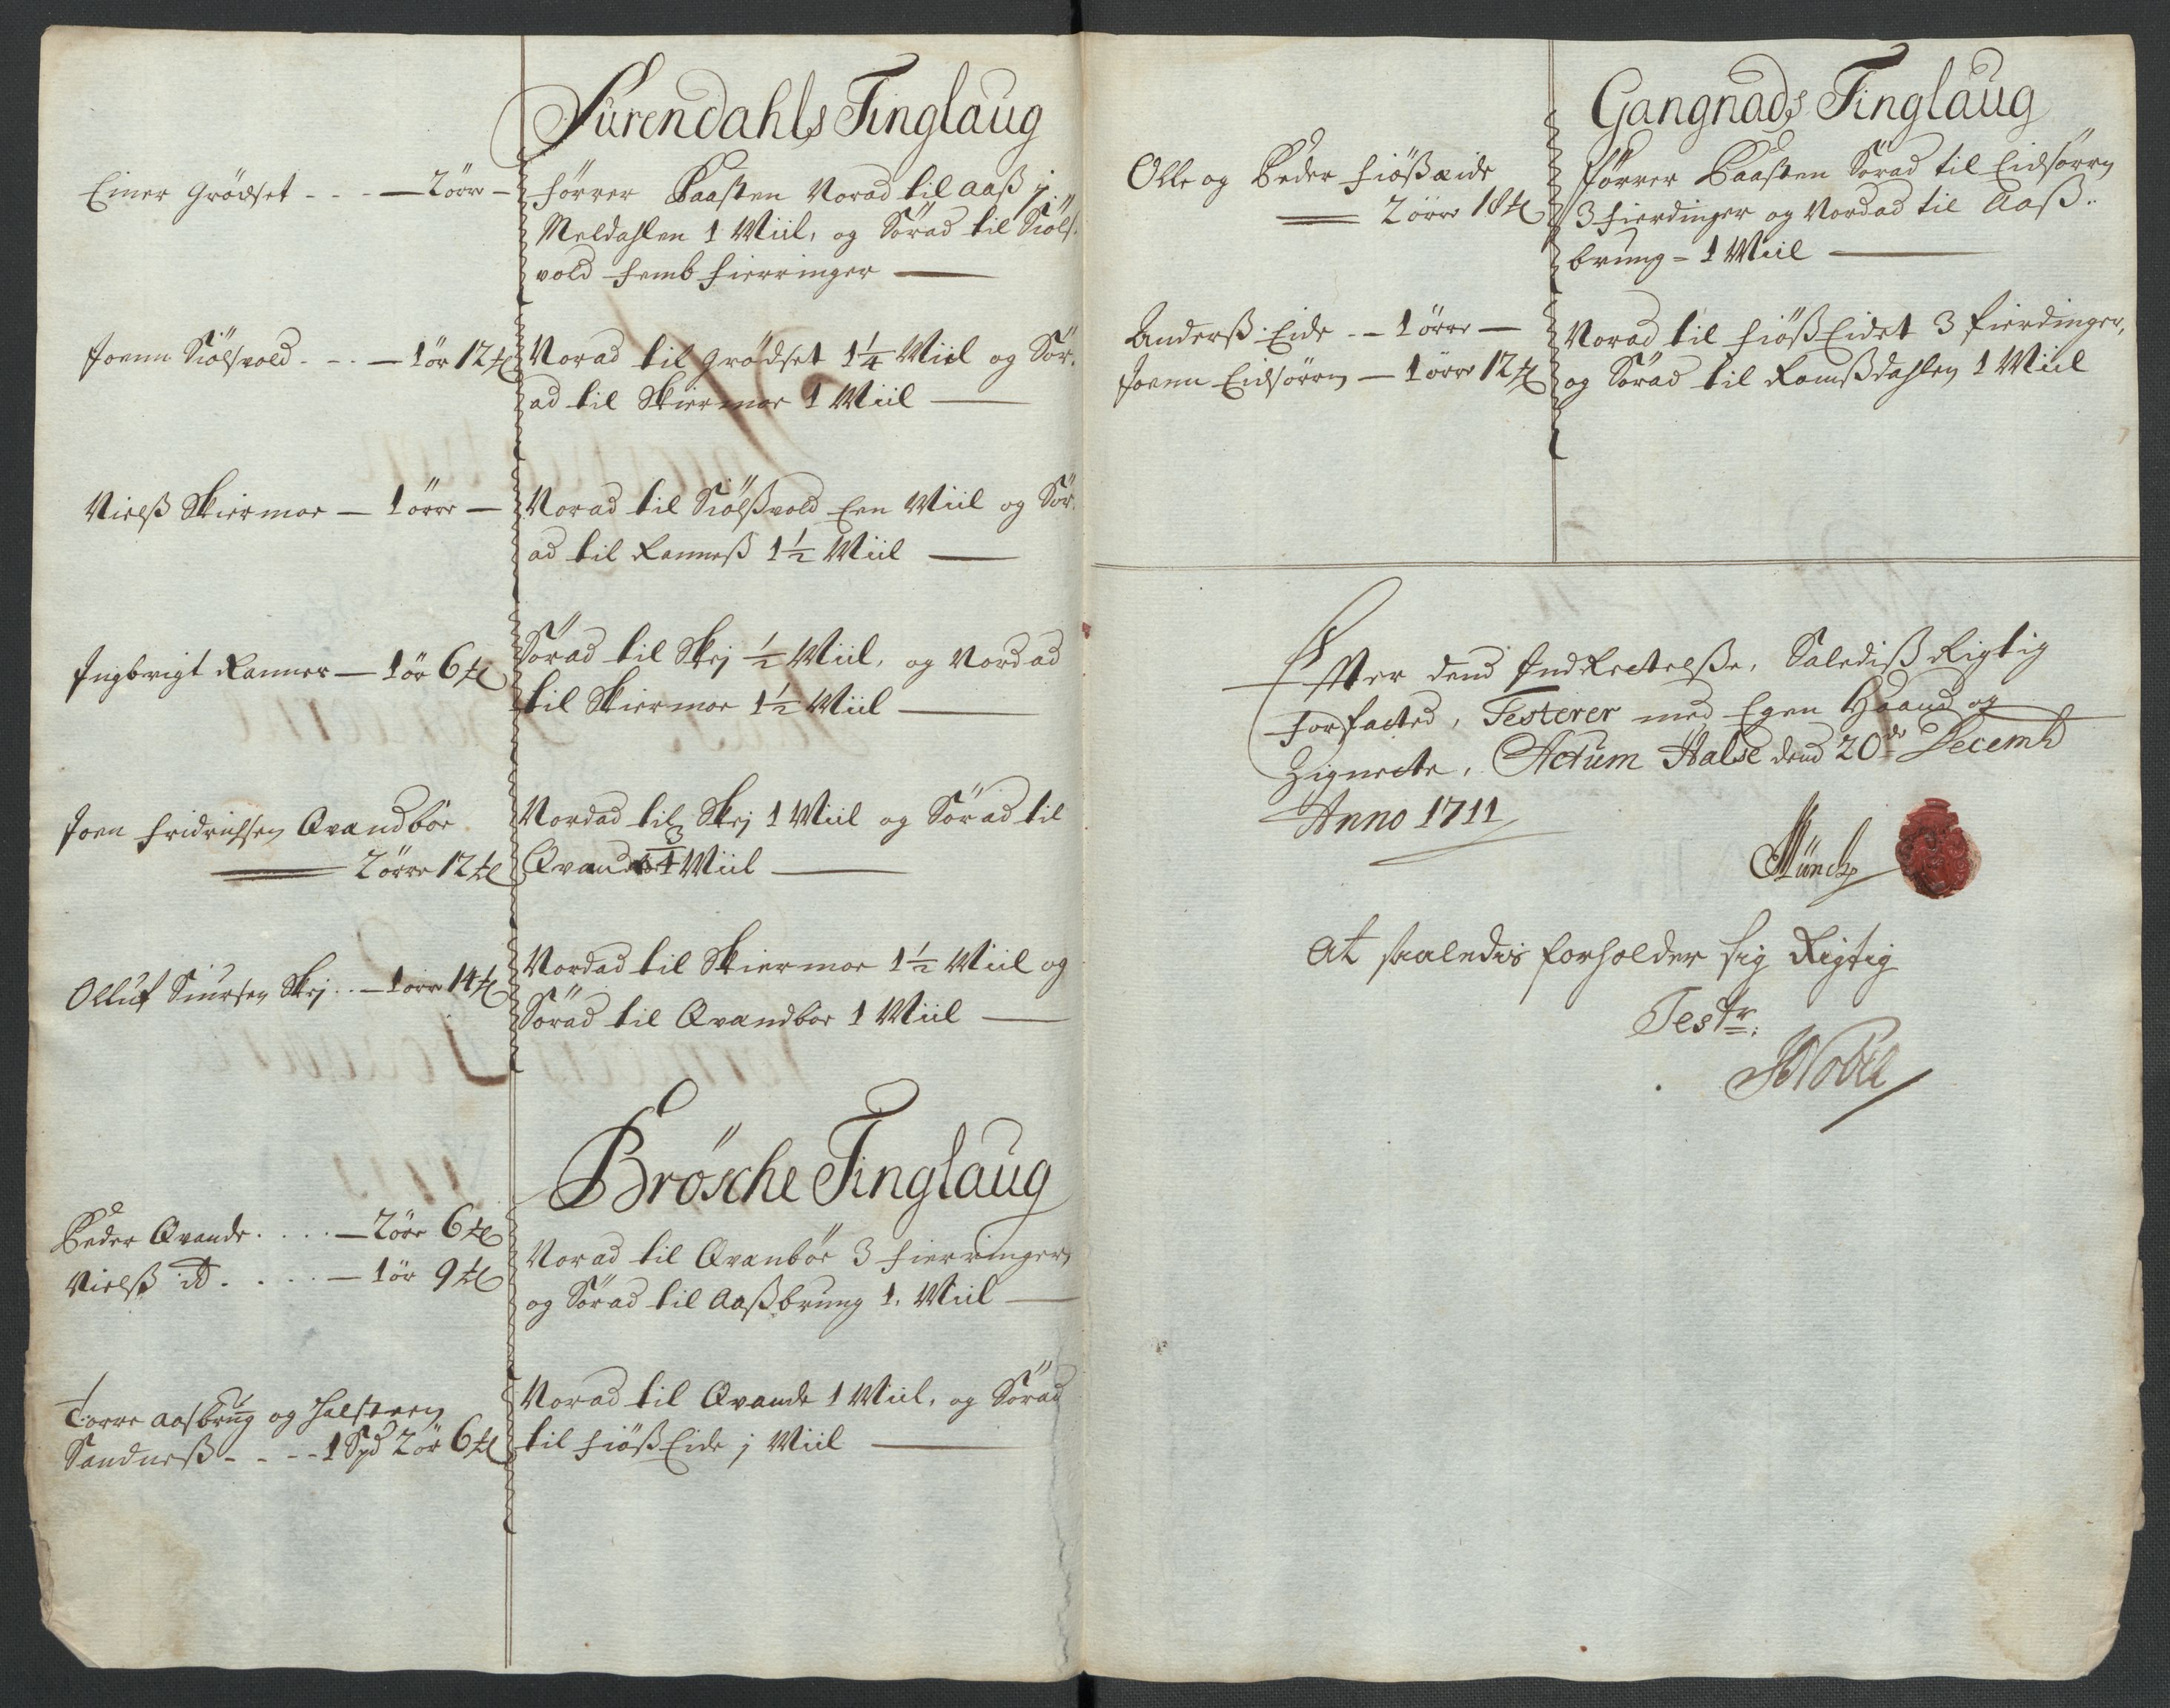 Surendahls Tinglaug
Einer Grödset - - - 2 örre -
förrer Baasten Norad til Aaß j
Meldahlen 1 Miil, og Sörad til Siöls-
vold femb fierringer
Joenn Siölsvold - - - 1 ör 12 ℔
Norad til Grödset 1¼ Miil og Sör-
ad til Skiermoe 1 Miil
Nielß Skiermoe - 1 örre -
Norad til Siölßvold Een Miil og Sör-
ad til Ranneß 1½ Miil
Ingbrigt Rannes - 1 ör 6 ℔
Sörad til Skej ½ Miil, og Nordad
til Skiermoe 1½ Miil
Joen Fridrichsen Qvandböe
2 örre 12 ℔
Nordad til Skej 1 Miil og Sörad til
Qvande ¾ Miil
Olluf Siursen Skej - - 1 örre 14 ℔
Nordad til Skiermoe 1½ Miil og
Sörad til Qvandboe 1 Miil
Brösche Tinglaug
Peder Qvande - - - - 2 ör 6 ℔
Nielß itd - - - - 1 ör 9 ℔
Norad til Qvanböe 3 fierringer,
og Sörad til Aaßbrung 1. Miil
Torre Aasbrung og Halsteen
Sandneß - - - 1 Spd 2 ör 6 ℔
Norad til Qvande 1 Miil, og Sörad
til Fiöß Eide j Miil
Gangnads Tinglaug
Olle og Peder Fiößæide
2 örre 18 ℔
förrer Baasten Sörad til Eidsörrn
3 fierdinger og Nordad til Aaß-
brung - 1 Miil
Anderß Eide - - 1 örre -
Joenn Eidsörrn - 1 örre 12 ℔
Norad til Fiöß Eidet 3 fierdinger,
og Sörad til Romßdahlen 1 Miil
Effter dend Indrettelße, Saalediß Rigtig
forfatted, Testerer med Egen Haand og
Zignette, Actum Halse dend 20de Decemb
Anno 1711
Münch
At saaledis forholder sig Rigtig
Testr:
JNobel